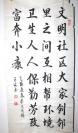 文明社区大家创邻
里之间互相帮环境
卫生人人保勤劳致
富奔小康